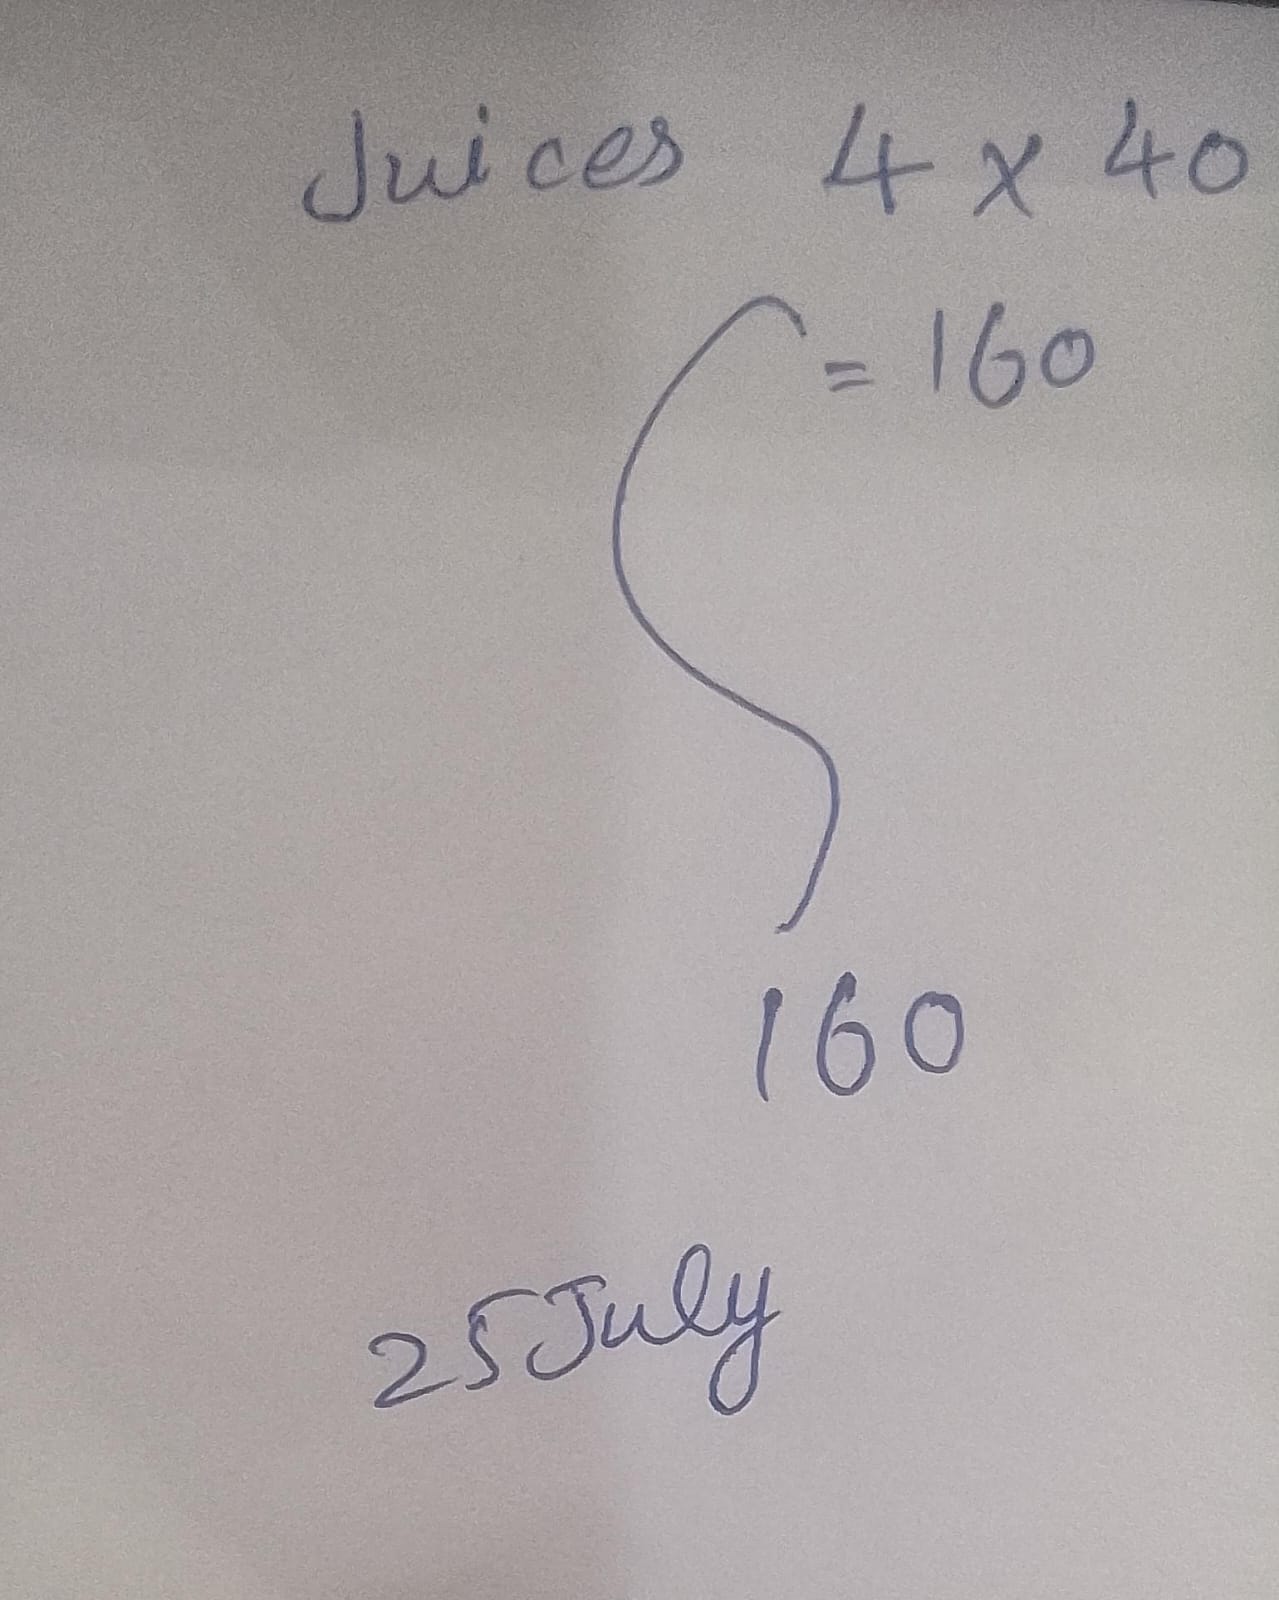 Juices 4 x 40
= 160
160
25 July